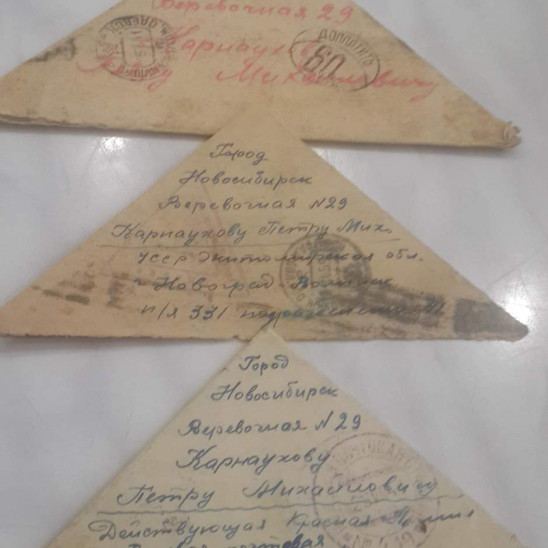 Веревочная 29
Карнаухову
Михайловичу
ДОПЛАТИТЬ
60
Город
Новосибирск
Веревочная N29
Карнаухову Петру Мих.
УССР Житомирская обл.
г Новоград Волынск
п/я 331
Город
Новосибирск
Веревочная N29
Карнаухову
Петру Михайловичу
Действующая Красная
почтовая